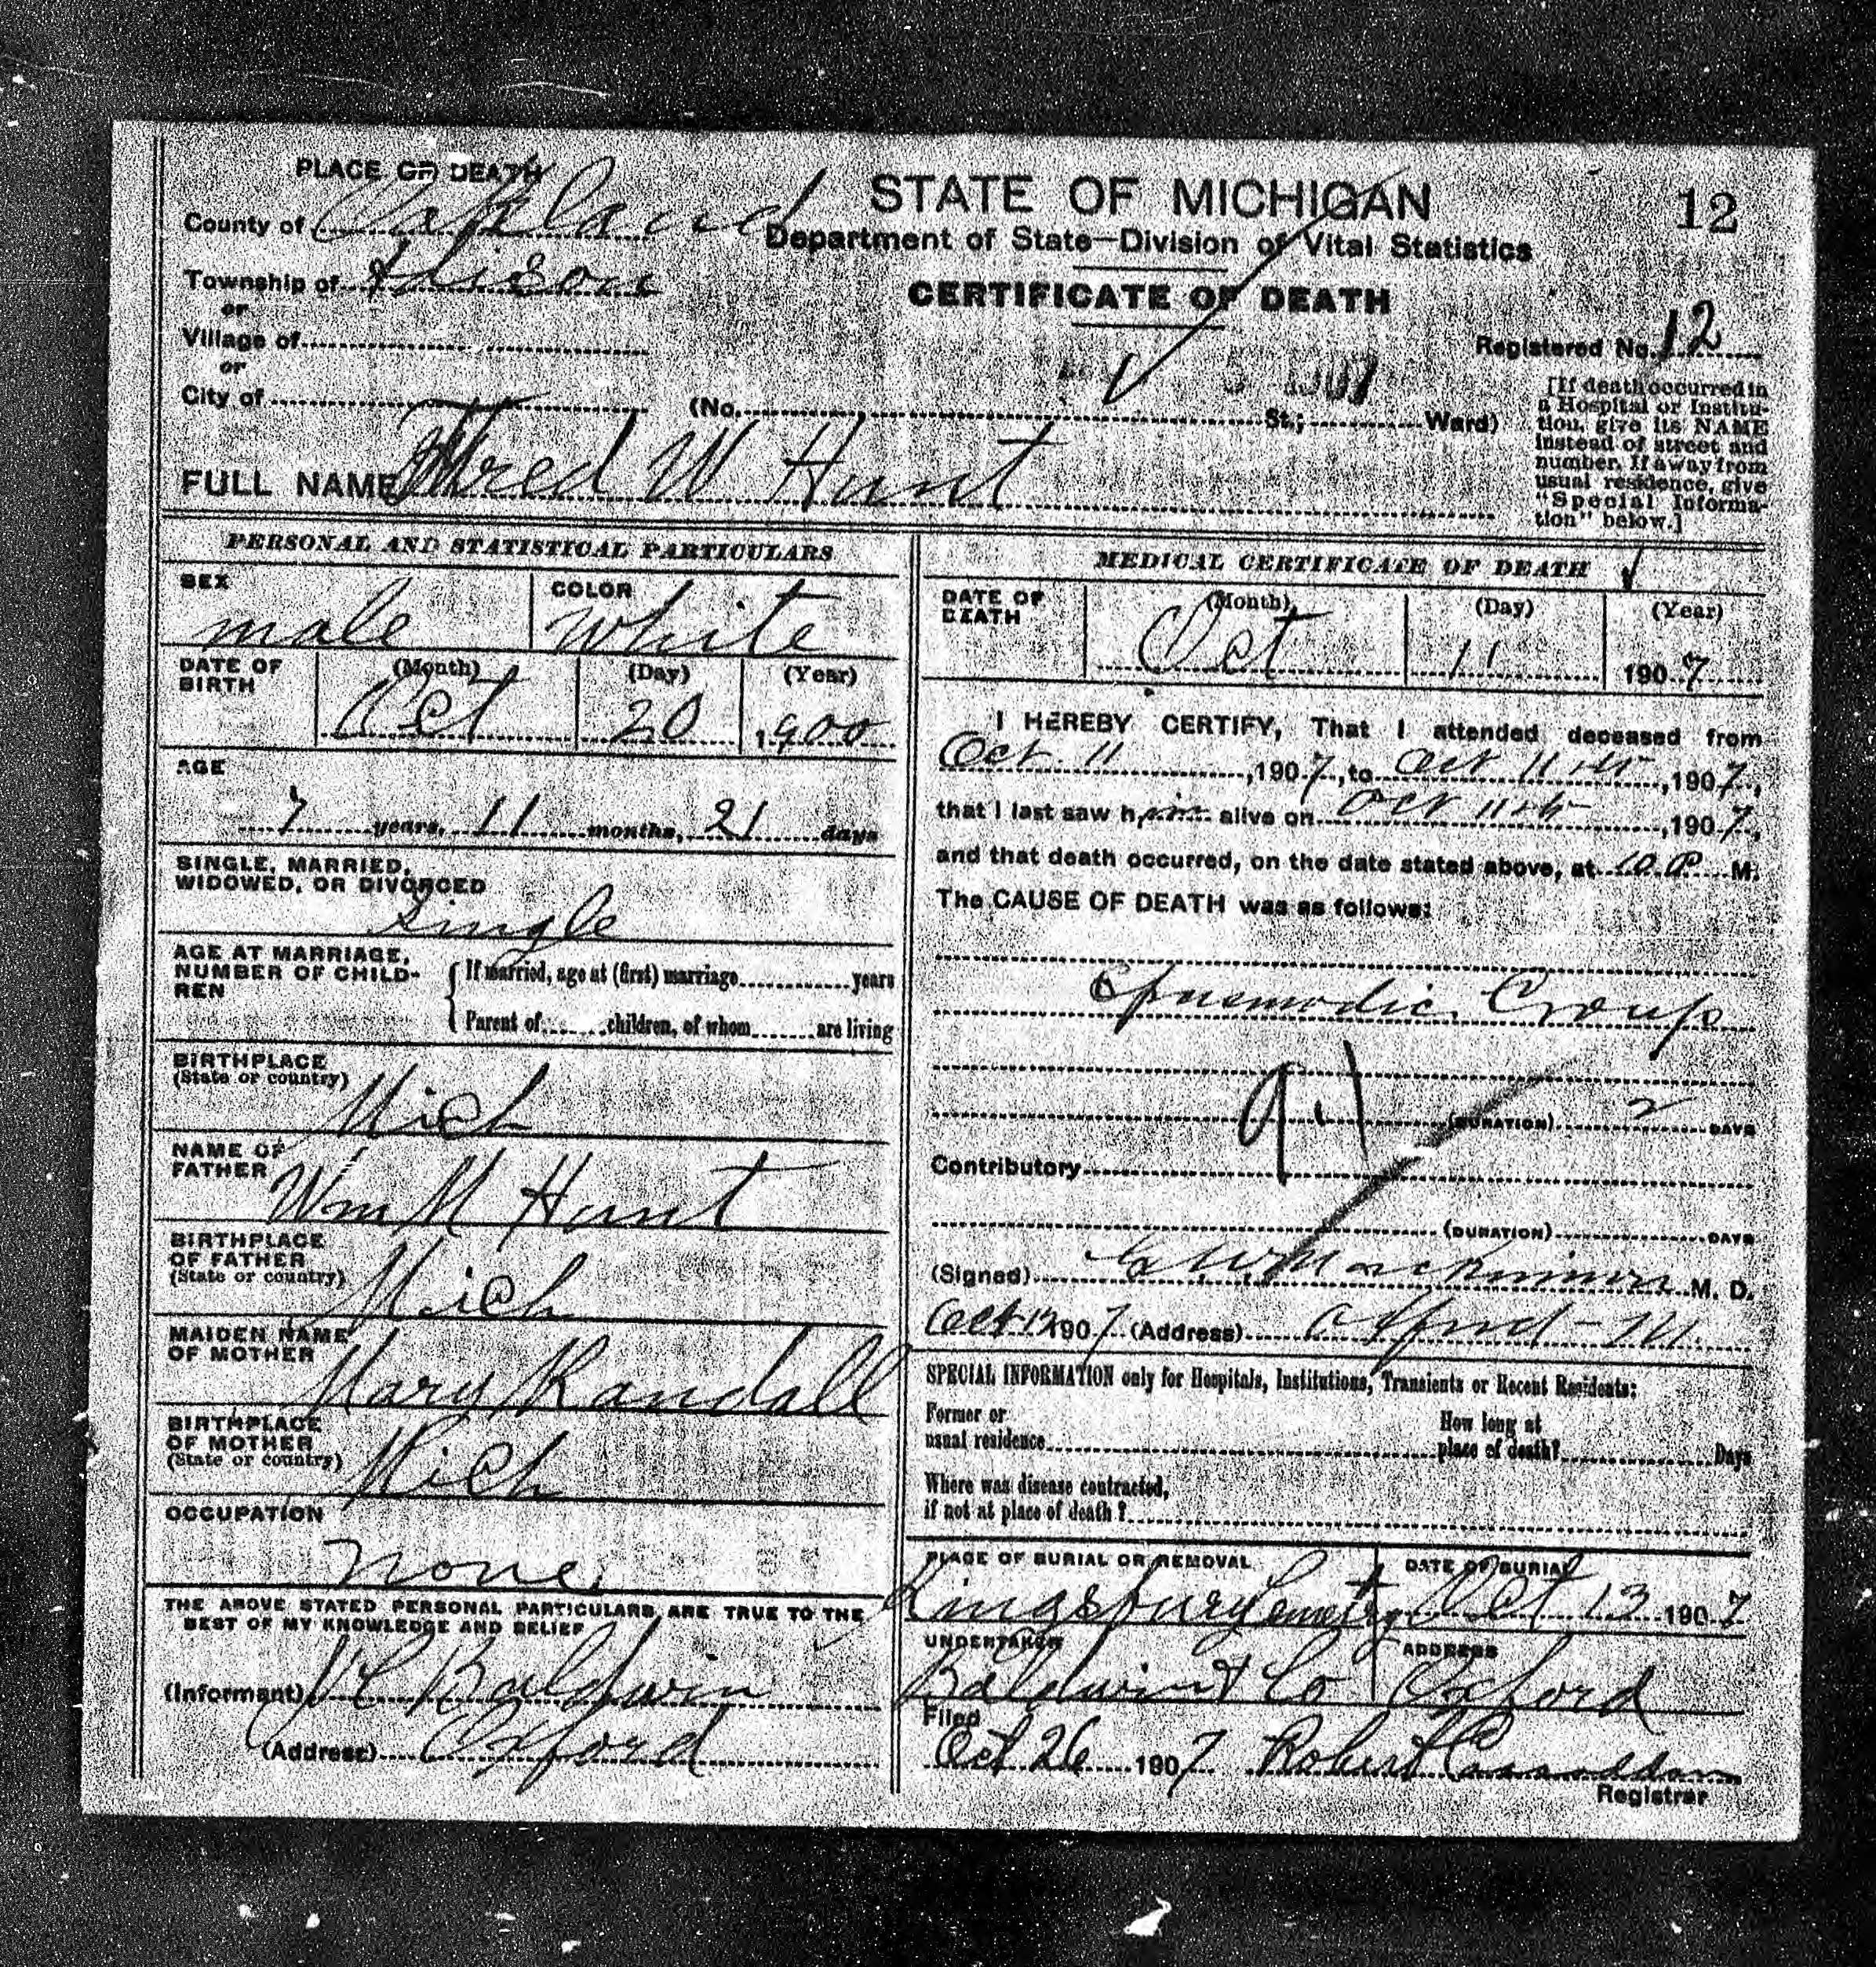 PLACE OF DEATH
County of Oakland
Township of Addison
or
Village of
or
City of
STATE OF MICHIGAN
Department of State—Division of Vital Statistics
CERTIFICATE OF DEATH
12
Registered No. 12
(No. St.; Ward)
[If death occurred in
a Hospital or Institu-
tion, give its NAME
instead of street and
number. If away from
usual residence, give
"Special Informa-
tion" below.]
FULL NAME Fred W Hunt
PERSONAL AND STATISTICAL PARTICULARS
SEX male
COLOR White
DATE OF BIRTH (Month) (Day) (Year)
Oct 20 1900
AGE
7 years, 11 months, 21 days
SINGLE, MARRIED,
WIDOWED, OR DIVORCED
Single
AGE AT MARRIAGE,
NUMBER OF CHILD-
REN
If married, age at (first) marriage years
Parent of children, of whom are living
BIRTHPLACE
(State or country)
Mich
NAME OF
FATHER
Wm M Hunt
BIRTHPLACE
OF FATHER
(State or country)
Mich
MAIDEN NAME
OF MOTHER
Mary Randall
BIRTHPLACE
OF MOTHER
(State or country)
Mich
OCCUPATION
none
THE ABOVE STATED PERSONAL PARTICULARS ARE TRUE TO THE
BEST OF MY KNOWLEDGE AND BELIEF
(Informant) Baldwin
(Address) Oxford
MEDICAL CERTIFICATE OF DEATH
DATE OF DEATH (Month) (Day) (Year)
Oct 11 1907
I HEREBY CERTIFY, That I attended deceased from
Oct. 11, 1907, to Oct 11th, 1907,
that I last saw him alive on Oct 11th, 1907,
and that death occurred, on the date stated above, at 10 P. M.
The CAUSE OF DEATH was as follows:
Spasmodic Croup
(DURATION) 2 DAYS
Contributory
(DURATION) DAYS
(Signed) M. D.
Oct 12 1907 (Address) Oxford - M.
SPECIAL INFORMATION only for Hospitals, Institutions, Transients or Recent Residents:
Former or
usual residence
How long at
place of death? Days
Where was disease contracted,
if not at place of death?
PLACE OF BURIAL OR REMOVAL
Kingsbury Cemetry
DATE OF BURIAL
Oct 13 1907
UNDERTAKER
Baldwin & Co
ADDRESS
Oxford
Filed
Oct 26 1907 Robert
Registrar